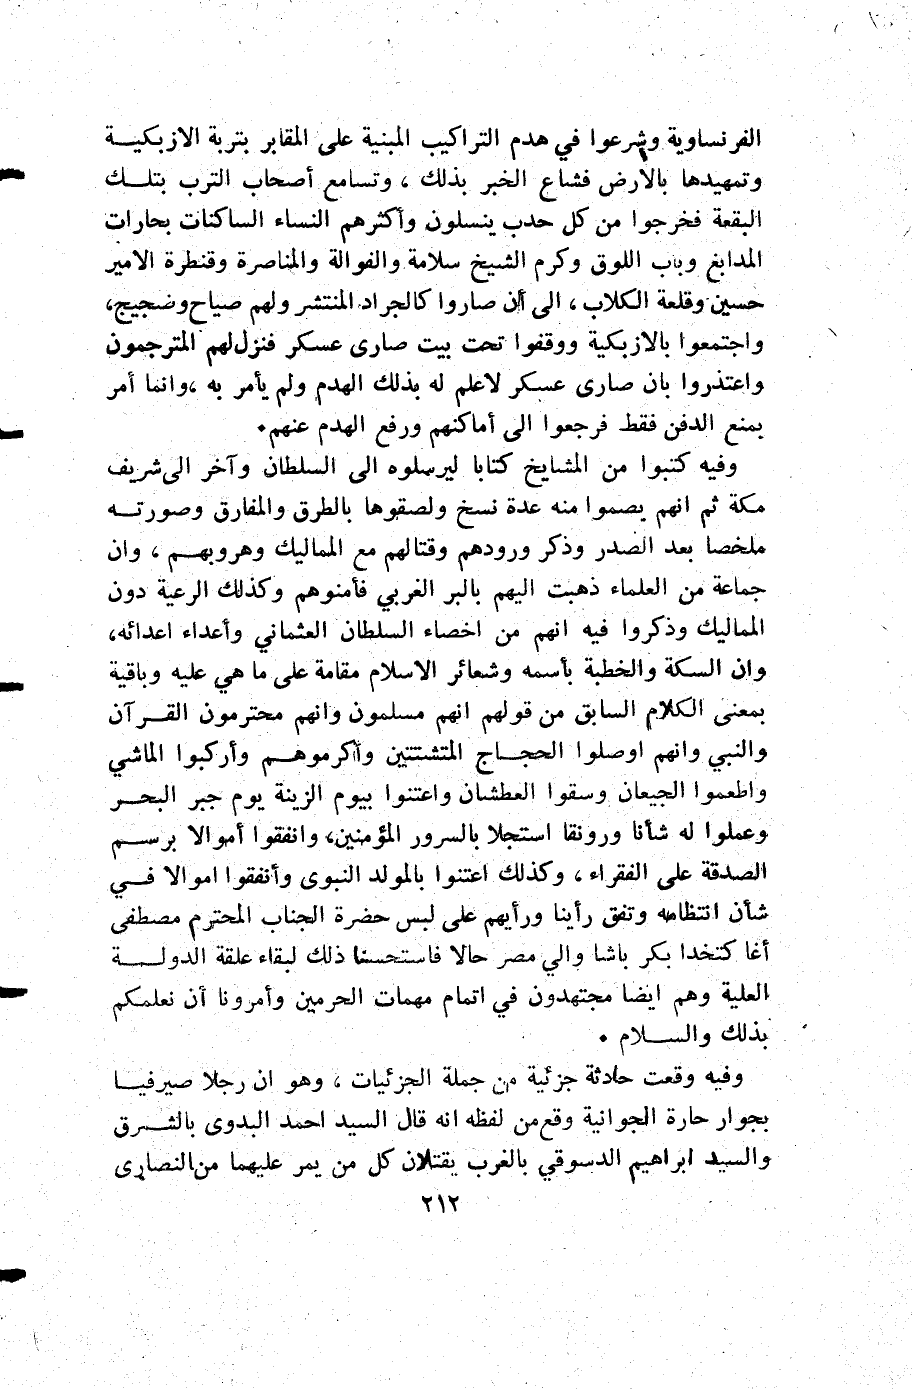 الفرنساوية وشرعوا في هدم التراكيب المبنية على المقابر بتربة الازبكيـــة
وتمهيدها بالأرض فشاع الخبر بذلك ، وتسامع أصحاب الترب بتلـــك
البقعة فخرجوا من كل حدب ينسلون وأكثرهم النساء الساكنات بحارات
المدابغ وباب اللوق وكرم الشيخ سلامة والفوالة والمناصرة وقنطرة الامير
حسين وقلعة الكلاب ، الى أن صاروا كالجراد المنتشر ولهم صياح وضجيج،
واجتمعوا بالازبكية ووقفوا تحت بيت صارى عسكر فنزل لهم المترجمون
واعتذروا بان صارى عسكر لاعلم له بذلك الهدم ولم يأمر به ،وانما أمر
بمنع الدفن فقط فرجعوا الى أماكنهم ورفع الهدم عنهم٠
وفيه كتبوا من المشايخ كتابا ليرسلوه الى السلطان وآخر الى شريف
مكة ثم انهم بصموا منه عدة نسخ ولصقوها بالطرق والمفارق وصورتـــه
ملخصا بعد الصدر وذكر ورودهم وقتالهم مع المماليك وهروبهـــم ، وان
جماعة من العلماء ذهبت اليهم بالبر الغربي فأمنوهم وكذلك الرعية دون
المماليك وذكروا فيه انهم من اخصاء السلطان العثماني وأعداء اعدائه،
وان السكة والخطبة بأسمه وشعائر الاسلام مقامة على ما هي عليه وباقية
بمعنى الكلام السابق من قولهم انهم مسلمون وانهم محترمون القـــرآن
والنبي وانهم اوصلوا الحجـــاج المتشتتين وأكرموهـــم وأركبوا الماشي
واطعموا الجيعان وسقوا العطشان واعتنوا بيوم الزينة يوم جبر البحـــر
وعملوا له شأنا ورونقا استجلا بالسرور المؤمنين، وانفقوا أموالا برســـم
الصدقة على الفقراء ، وكذلك اعتنوا بالمولد النبوى وأنفقوا اموالا فـــي
شأن انتظامه وتفق رأينا ورأيهم على لبس حضرة الجناب المحترم مصطفى
أغا كتخدا بكر باشا والي مصر حالا فاستحسنا ذلك لبقاء علقة الدولـــة
العلية وهم ايضا مجتهدون في اتمام مهمات الحرمين وأمرونا أن نعلمكم
بذلك والســـلام ٠
وفيه وقعت حادثة جزئية من جملة الجزئيات ، وهو ان رجلا صيرفيـــا
بجوار حارة الجوانية وقع من لفظه انه قال السيد احمد البدوى بالشـــرق
والسيد ابراهيم الدسوقي بالغرب يقتلان كل من يمر عليهما من النصارى
٢١٢